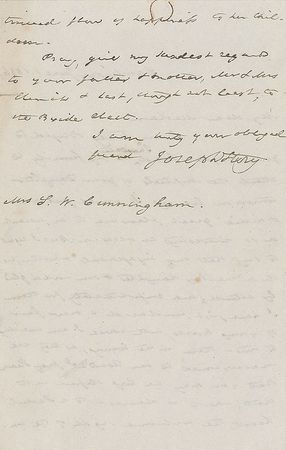 tinued flow of happiness to her chil-
dren.
Pray, give my kindest regards
to your father & mother, Mr & Mrs
& last, though not least, to
the Bride elect.
I am truly your obliged
friend Joseph Story
Mrs S. W. Cunningham.